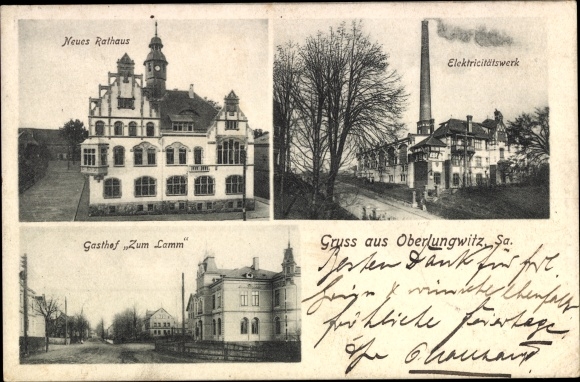 Neues Rathaus
Elektricitätswerk
Gasthof „Zum Lamm"
Gruss aus Oberlungwitz, Sa.
Besten Dank für
& wünsche ebenfalls
fröhliche Feiertage